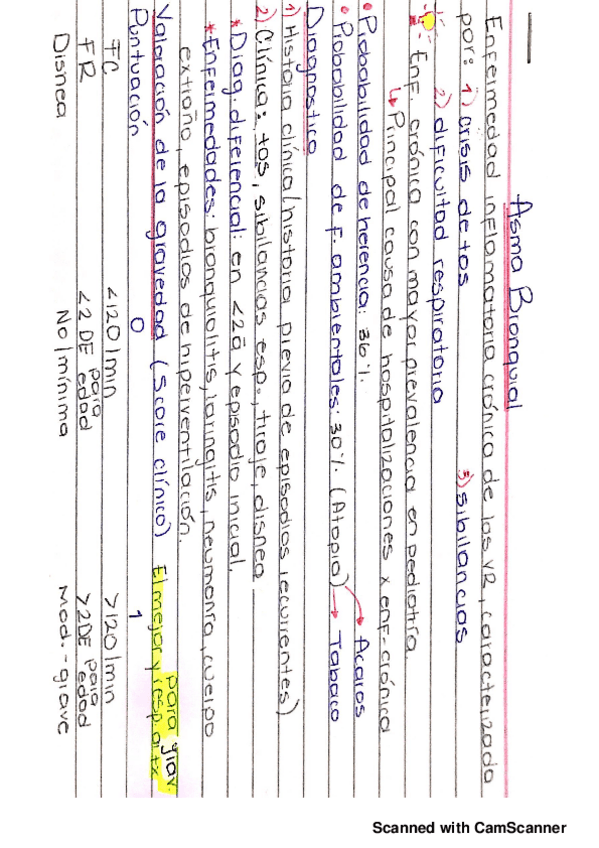 Asma Bronquial
Enfermedad inflamatoria crónica de las VR, caracterizada
por: 1) crisis de tos 3) sibilancias
2) dificultad respiratoria
Enf. crónica con mayor prevalencia en pediatría.
↳ Principal causa de hospitalizaciones x enf. crónica
• Probabilidad de herencia: 36%.
• Probabilidad de f. ambientales: 30%. (Atopia) → Acaros
→ Tabaco
Diagnostico
1) Historia clínica (historia previa de episodios recurrentes)
2) Clínica: tos, sibilancias esp., tiraje, disnea
* Diag. diferencial: en <2a y episodio inicial.
* Enfermedades: bronquiolitis, laringitis, neumonía, cuerpo
extraño, episodios de hiperventilación.
Valoración de la gravedad (Score clínico) El mejor para grav.
y resp. al tx
Puntuación 0 1
FC <120/min >120/min
FR <2 DE para edad >2DE para edad
Disnea No/mínima Mod.-grave
Scanned with CamScanner